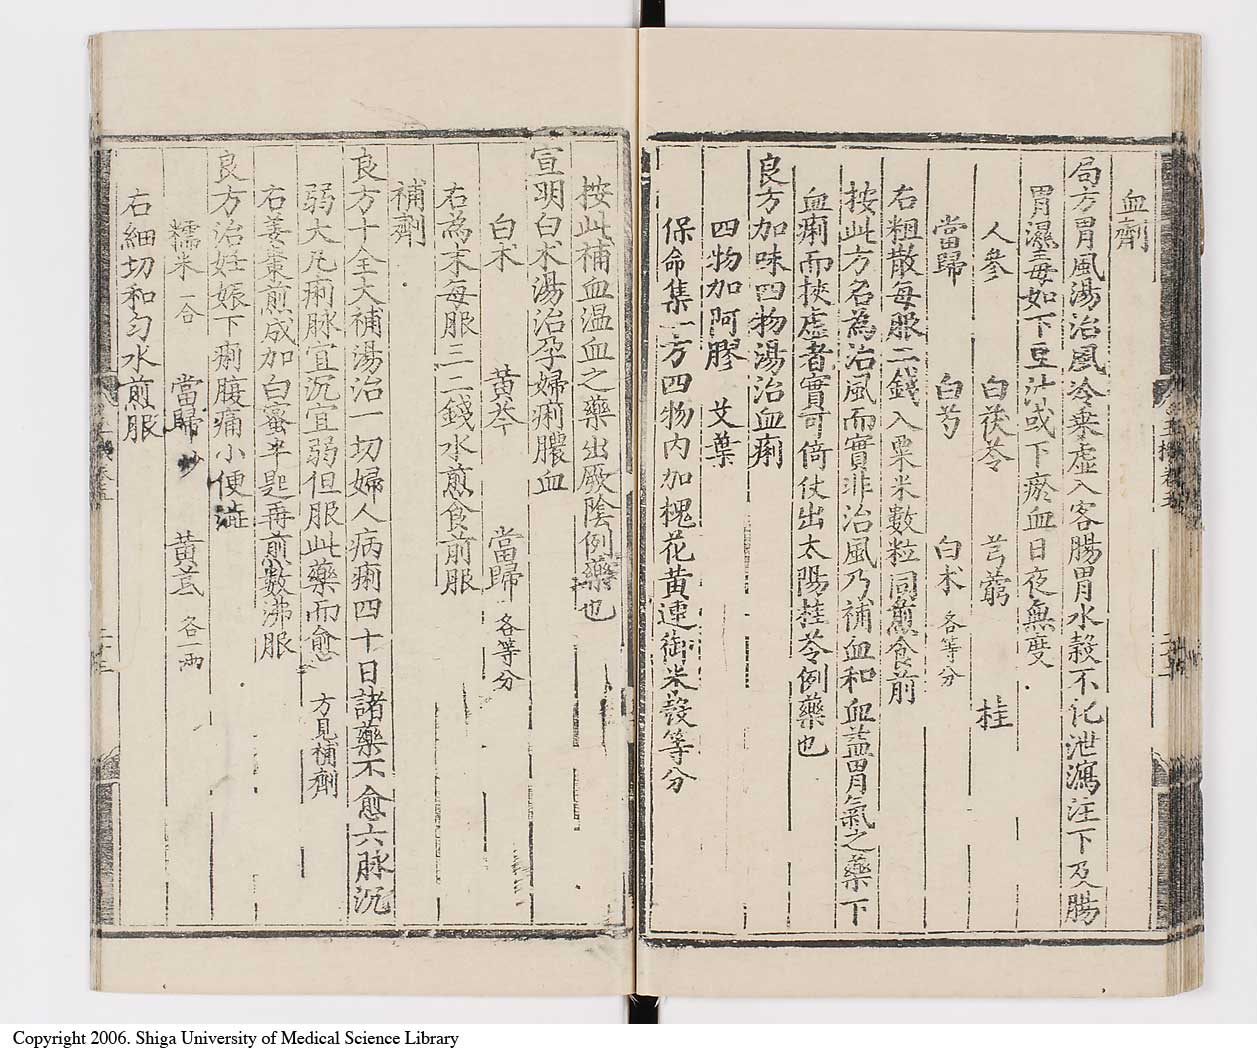 血劑
局方胃風湯治風冷乗虛入客腸胃水穀不化泄瀉注下及腸
胃濕毒如下豆汁或下瘀血日夜無度
人參 白茯苓 芎藭 桂
當歸 白芍 白朮 各等分
右粗散每服二錢入粟米數粒同煎食前
按此方名為治風而實非治風乃補血和血益胃氣之藥下
血痢而挾虛者實可倚仗出太陽桂苓例藥也
良方加味四物湯治血痢
四物加阿膠 艾葉
保命集一方四物內加槐花黃連御米殼等分
按此補血温血之藥出厥陰例藥也
宣明白朮湯治孕婦痢膿血
白朮 黃芩 當歸 各等分
右為末每服三二錢水煎食前服
補劑
良方十全大補湯治一切婦人病痢四十日諸藥不愈六脉沉
弱大凡痢脉宜沉宜弱但服此藥而愈 方見補劑
右姜棗煎成加白蜜半匙再煎數沸服
良方治妊娠下痢腹痛小便澁
糯米 一合 當歸 炒 黃芪 各一兩
右細切和勻水煎服
Copyright 2006. Shiga University of Medical Science Library